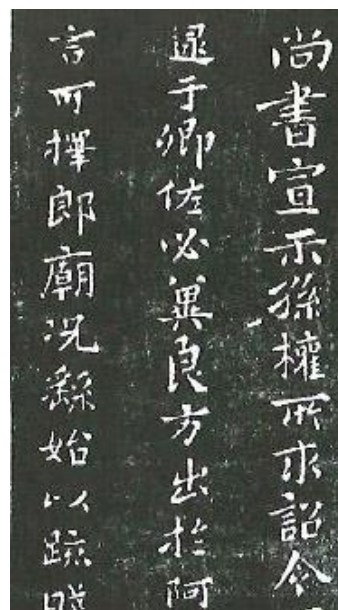 尚書宣示孫權所求詔令
逮于卿佐必冀良方出於阿
言可擇郎廟况繇始以疏賤